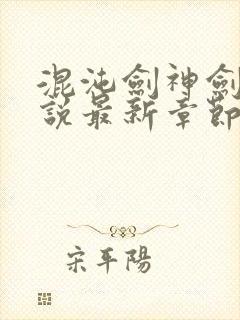 混沌劍神劍
說最新章節
宋平陽